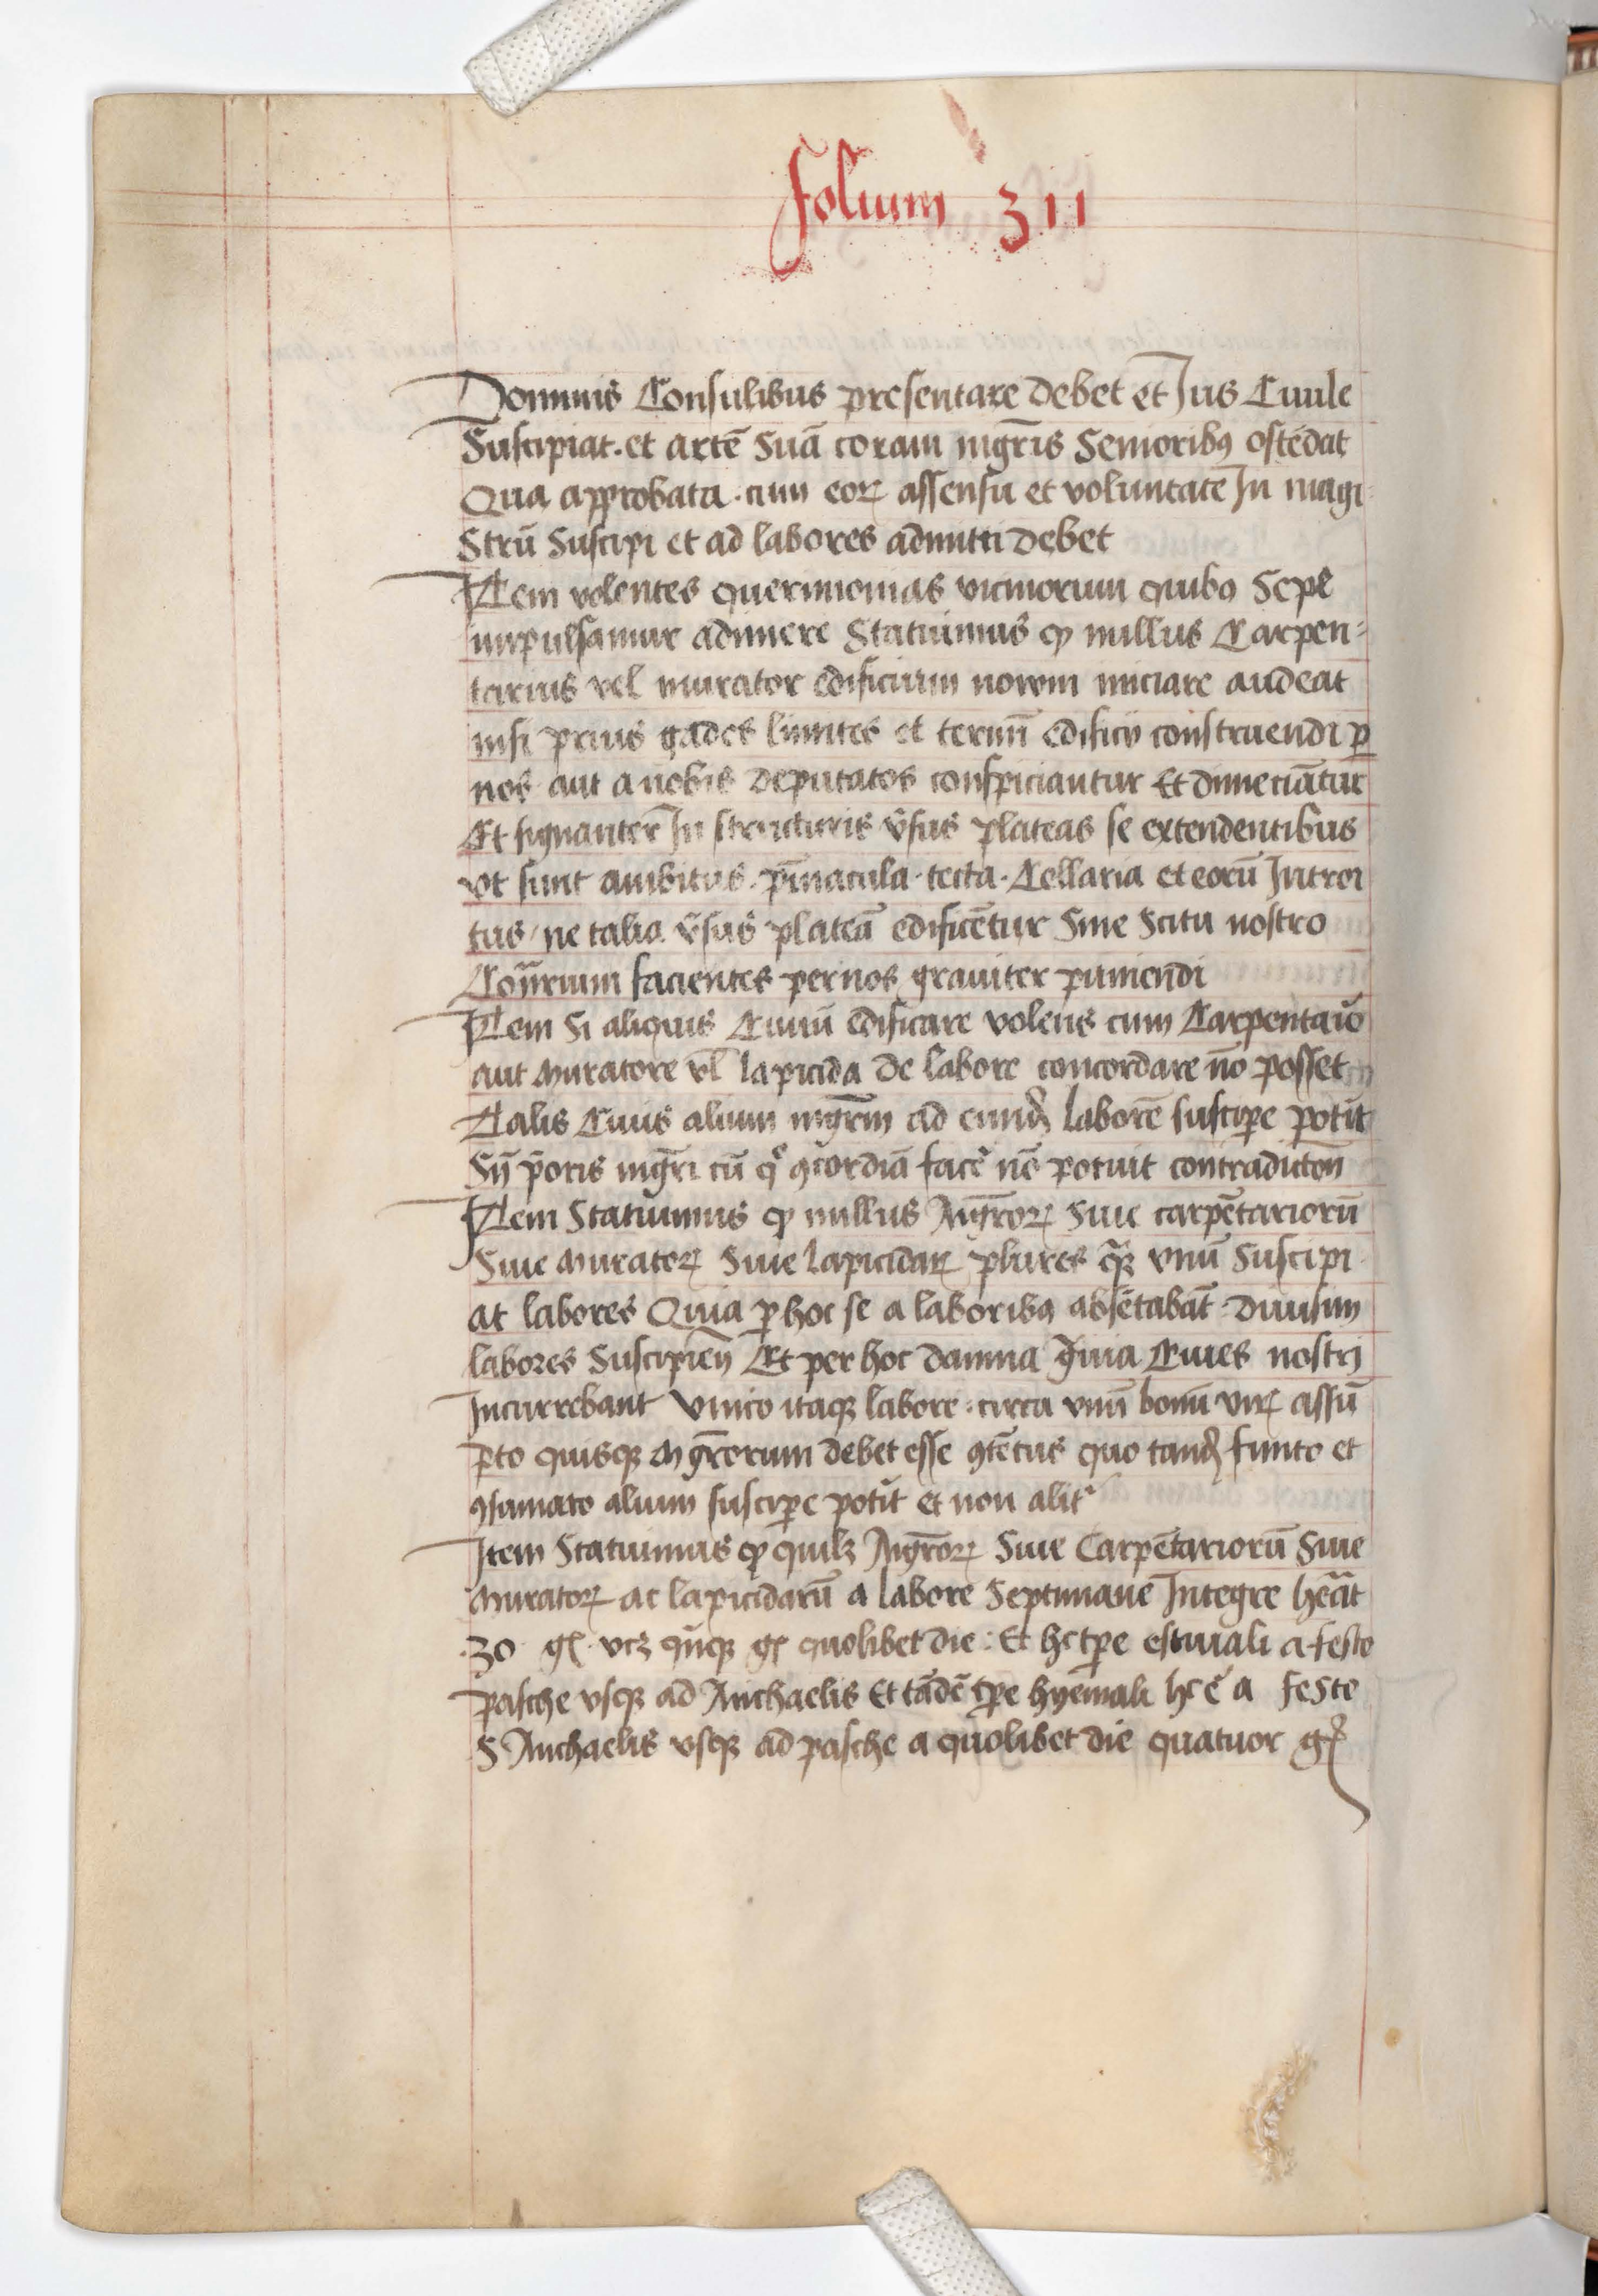 folium 311
Dominis Consulibus presentare debet et Jus Ciuile
Suscipiat. et artē Suā coram mgr̄is Senioribꝰ ostēdat
Qua approbata. cum eoꝝ assensu et voluntate In magi
Strū Suscipi et ad labores admitti debet
Item volentes querimonias vicinorum quibꝰ Sepe
impulsamur adimere Statuimus ꝙ nullus Carpen=
tarius vel murator edificium nowm iniciare audeat
nisi prius gades limites et termī edificij construendi ꝑ
nos aut a nobis deputatos conspiciantur Et dimeciātur
Et signanter In structuris v̄sus plateas se extendentibus
vt sunt ambitus. pīnacula. tecta. Cellaria et eorū Introi
tus / ne talia v̄sus plateā edificētur Sine Scitu nostro
Cōnrium facientes per nos grauiter puniendi
Item Si aliquis Ciuiū edificare volens cum Carpentario
aut Muratore vl̄ lapicida de labore concordare nō posset
Talis Ciuis alium mgr̄m ad eund̄ laborē susciꝑe poti̅t
Sn̄ p̄oris mgr̄i cū qͦ ꝯcordiā facē nō potuit contradictōn
Item Statuimus ꝙ nullus Mgr̄oꝝ Siue carpētariorū
Siue Muratoꝝ Siue lapicidaꝝ plures qꝫ vnū Suscipi
at labores Quia ꝑ hoc se a laboribꝰ absētabāt. diuisim
labores Suscipien̄ Et per hoc damna gͣuia Ciues nostrj
Incurrebant Vnico itaqꝫ labore. circa vnū bonū virꝝ assū
pto quisqꝫ Mgr̄orum debet esse ꝯtētus quo tand̄ finito et
ꝯsumato alium susciꝑe poti̅t et non alit̉
Item Statuimus ꝙ quilꝫ Mgr̄oꝝ Siue Carpētariorū Siue
Muratoꝝ ac lapicidarū a labore Septimane Integre hēat
.30. gꝭ. vcꝫ qūqꝫ gꝭ quolibet die: Et hc tꝑe estiuali a festo
pasche vsqꝫ ad Michaelis Et tādē tꝑe hyemali hc ē a feste
S Michaelis vsqꝫ ad pasche a quolibet die quatuor gꝭ